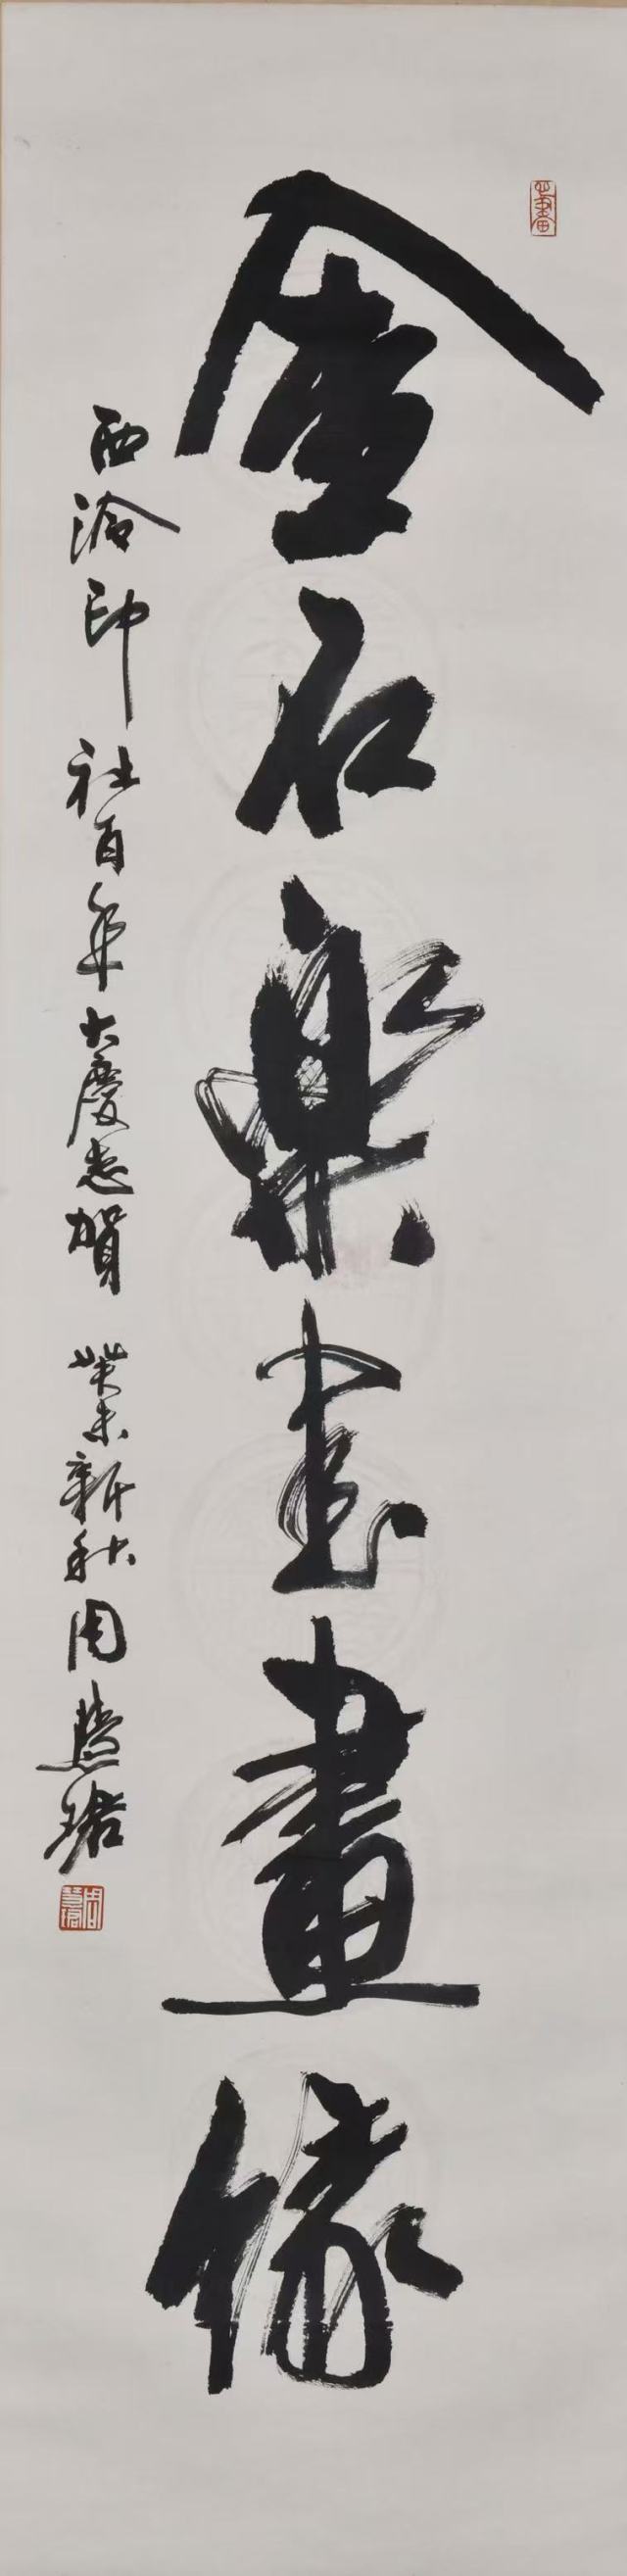 金石樂書畫緣
西泠印社百年大慶志賀 癸未新秋周慧珺
周慧珺